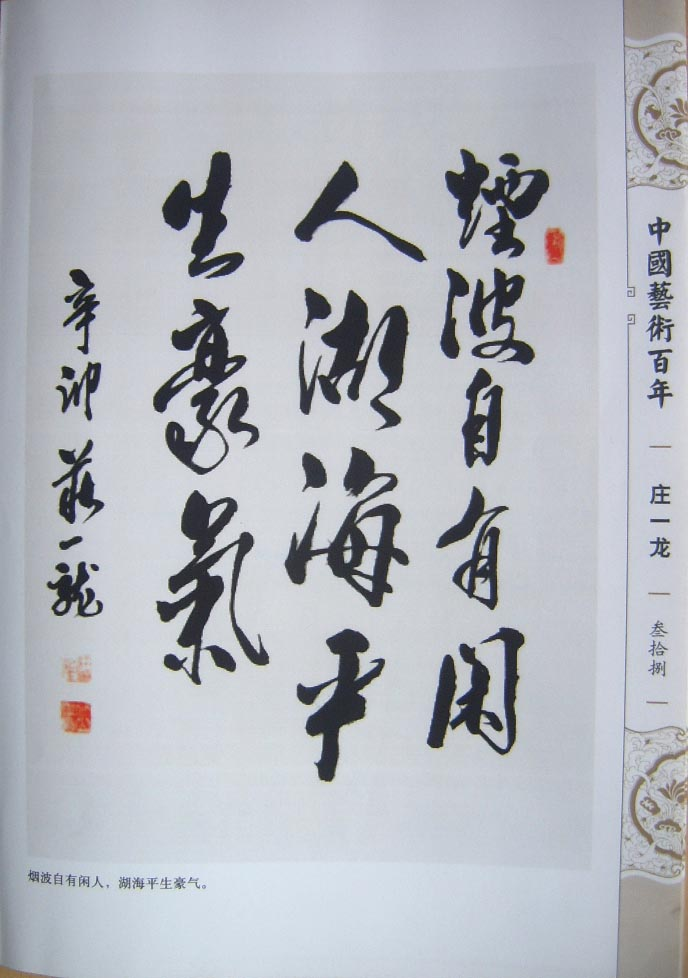 煙波自有閑
人湖海平
生豪氣
辛卯莊一龍
中國藝術百年
庄一龙
叁拾捌
烟波自有闲人，湖海平生豪气。